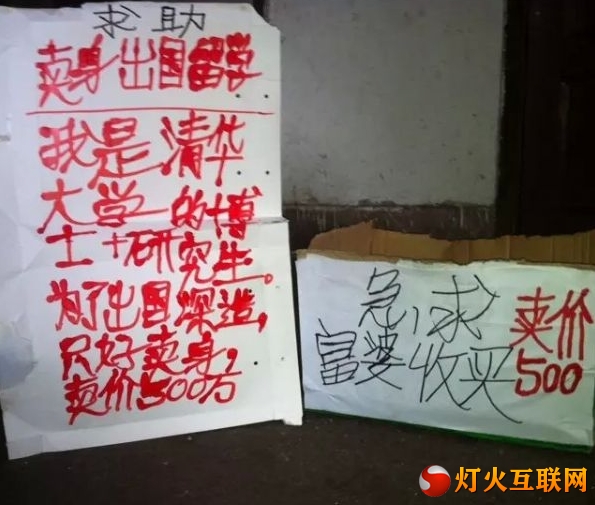 求助
卖身出国留学
我是清华
大学的博
士+研究生。
为了出国深造,
只好卖身,
卖价500万
急求
富婆收买
卖价
500
灯火互联网